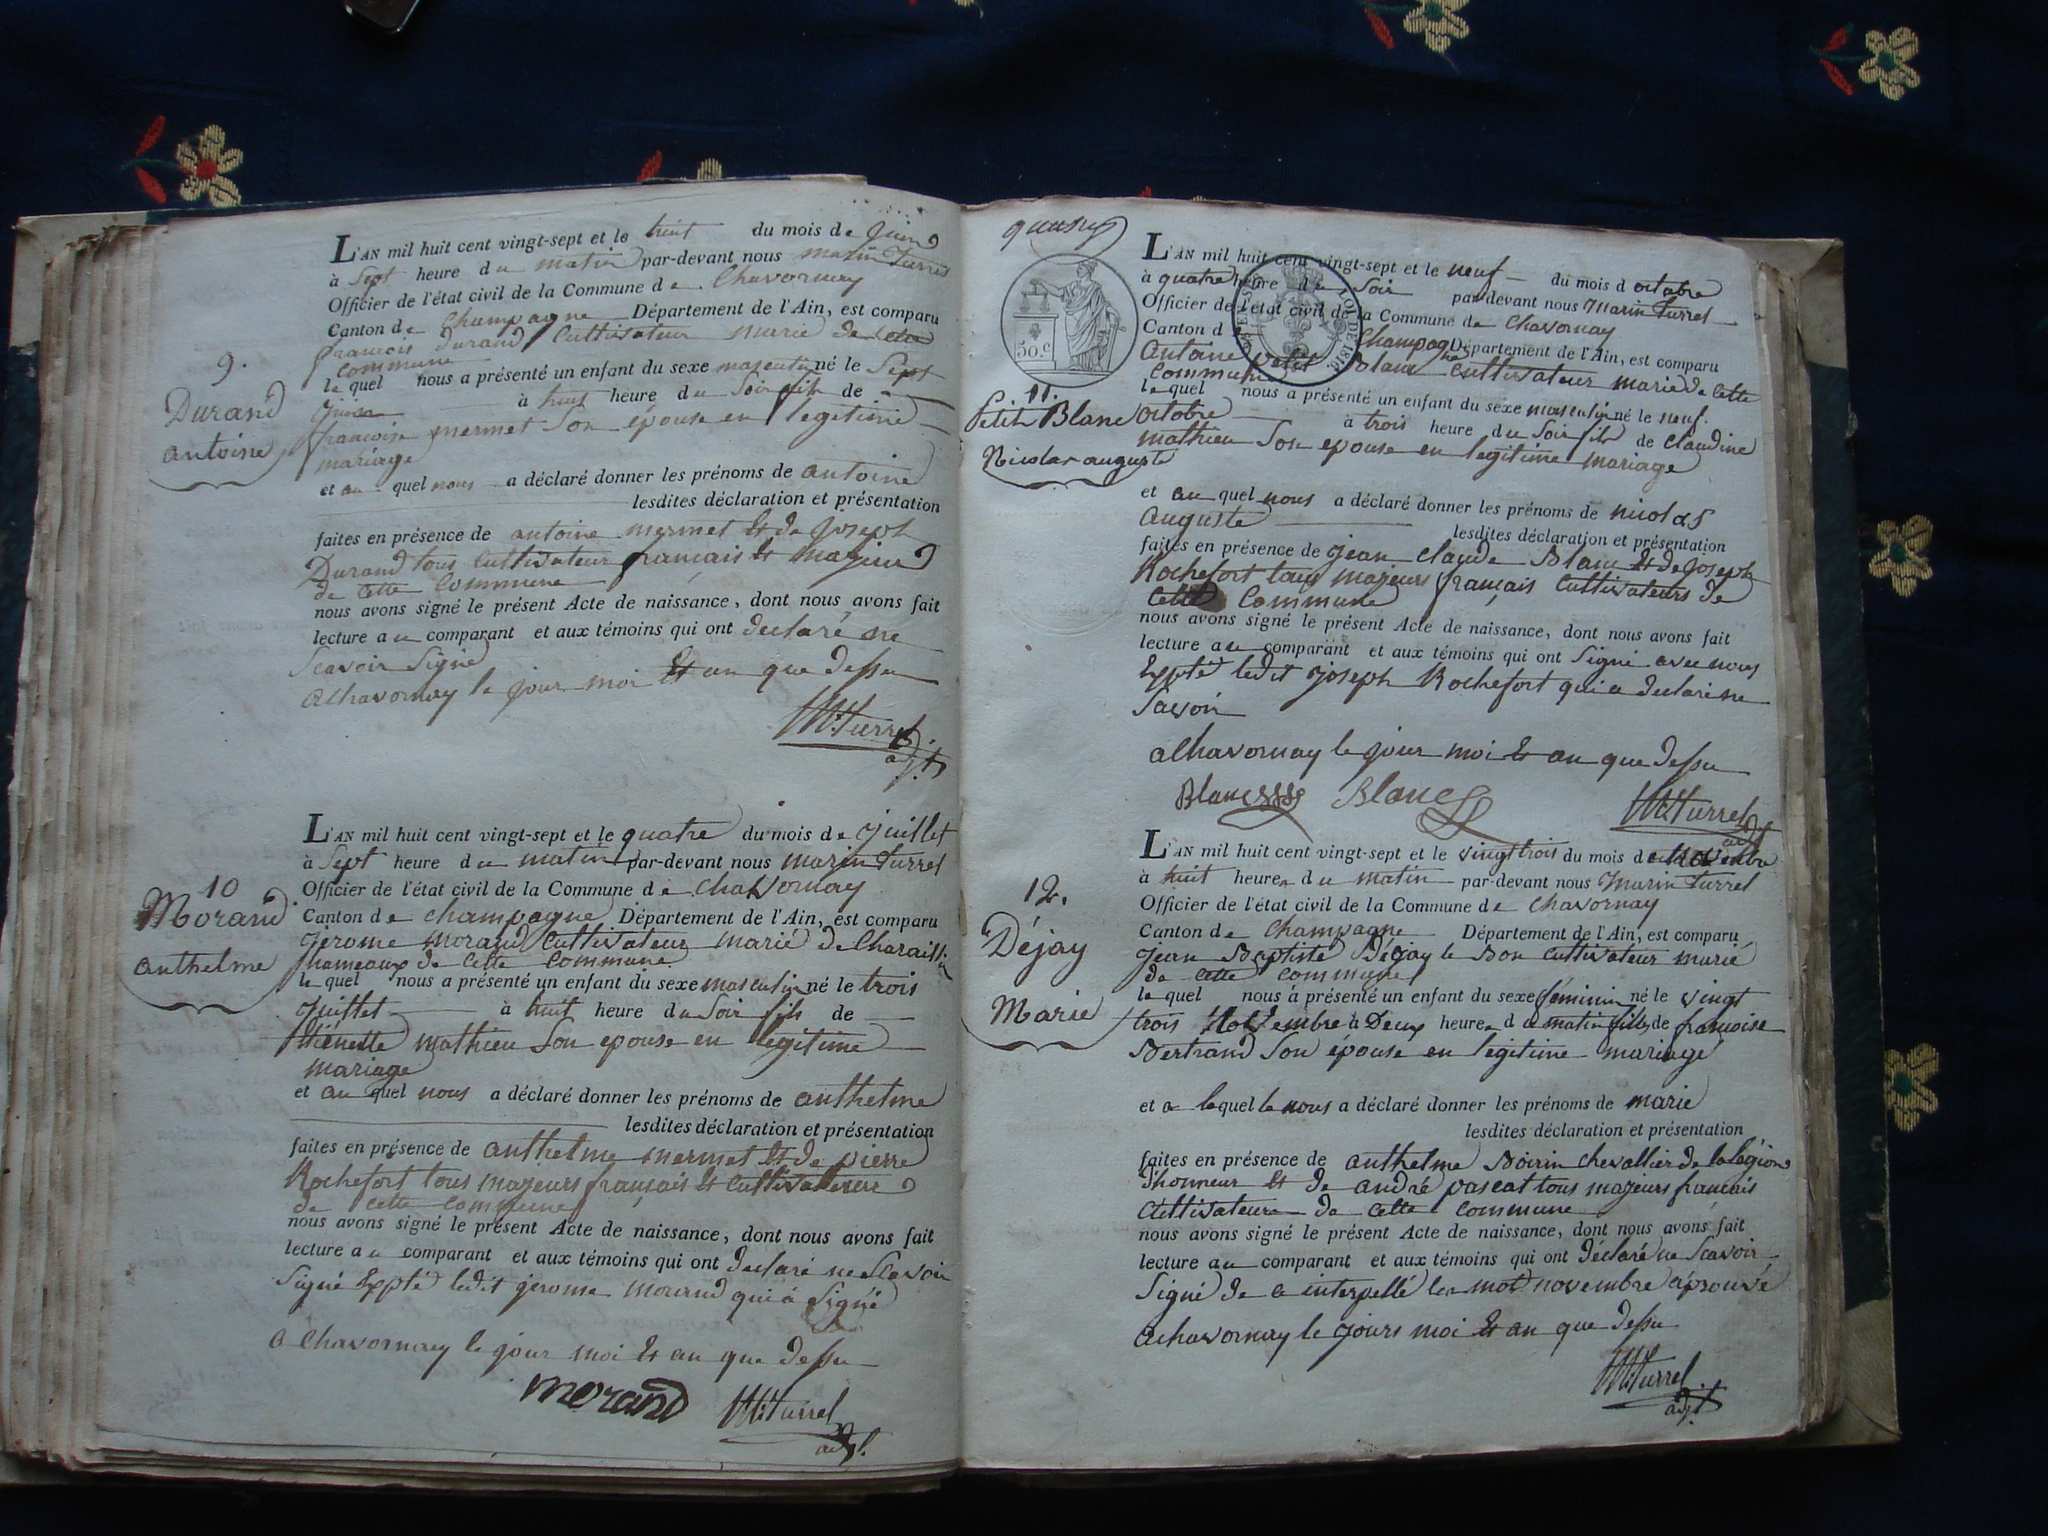 L'AN mil huit cent vingt-sept et le huit du mois de juin
à Sept heure du matin par-devant nous marin Turrel
Officier de l'état civil de la Commune de Chavornay
Canton de Champagne Département de l'Ain, est comparu
françois Durand Cultivateur marié de cette
commune
le quel nous a présenté un enfant du sexe masculin né le Sept
juin à huit heure du Soir fils de
françoise mermet Son épouse en legitime
mariage
et au quel nous a déclaré donner les prénoms de antoine
lesdites déclaration et présentation
faites en présence de antoine mermet et de joseph
Durand tous Cultivateur français et majeur
de cette Commune
nous avons signé le présent Acte de naissance, dont nous avons fait
lecture au comparant et aux témoins qui ont declaré ne
Scavoir Signé
a Chavornay le jour moi et an que dessu
M. Turrel
adjt
9.
Durand
antoine
L'AN mil huit cent vingt-sept et le quatre du mois de juillet
à Sept heure du matin par-devant nous marin turrel
Officier de l'état civil de la Commune de Chavornay
Canton de Champagne Département de l'Ain, est comparu
jérome morand Cultivateur marié de Charaillin
hameaux de Cette Commune
le quel nous a présenté un enfant du sexe masculin né le trois
juillet à huit heure du Soir fils de
mathieu Son epouse en legitime
mariage
et au quel nous a déclaré donner les prénoms de anthelme
lesdites déclaration et présentation
faites en présence de anthelme mermet et de pierre
Rochefort tous majeurs français et cultivateur
de cette commune
nous avons signé le présent Acte de naissance, dont nous avons fait
lecture au comparant et aux témoins qui ont declaré ne Scavoir
Signé Expté ledit jerome morand qui à Signé
a Chavornay le jour moi et an que dessu
morand M. Turrel
adjt.
10
Morand
anthelme
50.c
LOI DE 1816
L'AN mil huit cent vingt-sept et le neuf du mois d octobre
à quatre heure du Soir par-devant nous Marin turrel
Officier de l'état civil de la Commune de Chavornay
Canton de Champagne Département de l'Ain, est comparu
Antoine petit Blanc cultivateur marié de cette
Commune
le quel nous a présenté un enfant du sexe masculin né le neuf
octobre à trois heure du Soir fils de Claudine
mathieu Son epouse en legitime mariage
et au quel nous a déclaré donner les prénoms de nicolas
Auguste
lesdites déclaration et présentation
faites en présence de jean Claude Blanc et de joseph
Rochefort tous majeurs français Cultivateurs de
Cette Commune
nous avons signé le présent Acte de naissance, dont nous avons fait
lecture au comparant et aux témoins qui ont Signé avec nous
Expté ledit joseph Rochefort qui a declaré ne
Savoir
a Chavornay le jour moi et an que dessu
Blanc Blanc M. Turrel
adjt
11.
Petit Blanc
Nicolas auguste
L'AN mil huit cent vingt-sept et le vingt trois du mois de Novembre
à huit heure du matin par-devant nous Marin turrel
Officier de l'état civil de la Commune de Chavornay
Canton de Champagne Département de l'Ain, est comparu
jean Baptiste Déjay le Bon cultivateur marié
de cette commune
le quel nous à présenté un enfant du sexe féminin né le vingt
trois Novembre à Deux heure du matin fille de françoise
Bertrand Son épouse en legitime mariage
et a lequelle nous a déclaré donner les prénoms de marie
lesdites déclaration et présentation
faites en présence de anthelme Boirin chevallier de la légion
d'honneur et de andré pascat tous majeurs francais
Cultivateur de cette commune
nous avons signé le présent Acte de naissance, dont nous avons fait
lecture au comparant et aux témoins qui ont déclaré ne Scavoir
Signé de a interpellé les mot novembre aprouvé
a chavornay le jours moi et an que dessu
M. Turrel
adjt
12.
Déjay
Marie